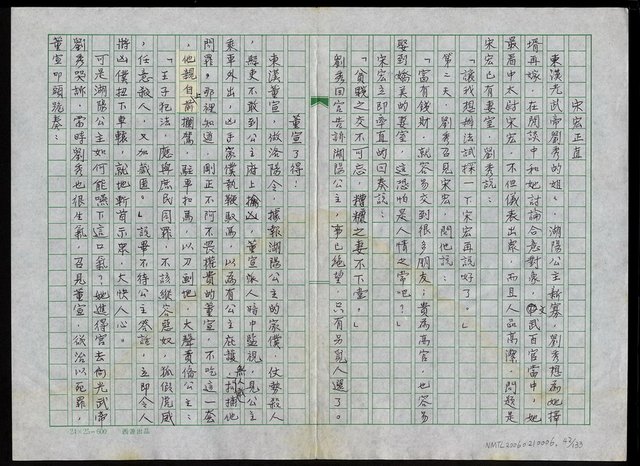 宋宏正直
東漢光武帝劉秀的姐、湖陽公主新寡,劉秀想為她擇
壻再嫁,在閒談中和她討論合意對象。文武百官當中,她
最看中太尉宋宏,不但儀表出衆,而且人品高潔,問題是
宋宏已有妻室,劉秀說:
「讓我想辦法試探一下宋宏再說好了。」
第二天,劉秀召見宋宏,問他說:
「富有錢財,就容易交到很多朋友;貴為高官,也容易
娶到嬌美的妻室,這恐怕是人情之常吧?」
宋宏立即率直的回奏說:
「貧賤之交不可忘,糟糠之妻不下堂。」
劉秀回宮告訴湖陽公主,事已絕望,只有另覓人選了。
董宣了得:
東漢董宣,做洛陽令,據報湖陽公主的家僕,仗勢殺人
,縣吏不敢到公主府上擒凶,董宣派人暗中監視,見公主
乘車外出,凶手家僕執鞭馭馬,以為有公主在護,無人敢攔捕他
問罪,那裡知道,剛正不阿不畏權貴的董宣,不吃這一套
,他親自上前攔駕,駐車扣馬,以刀劃地,大聲責備公主:
「王子犯法,應與庶民同罪,不該縱容惡奴,狐假虎威
,任意殺人,又加藏匿。」說畢不待公主答話,立即令人
將凶僕扭下車轅,就地斬首示眾,大快人心。
可是湖陽公主如何能嚥下這口氣?她進得宮去向光武帝
劉秀哭訴,當時劉秀也很生氣,召見董宣,欲治以死罪,
董宣叩頭跪奏:
24×25=600
NMTL20060210006, 43/133